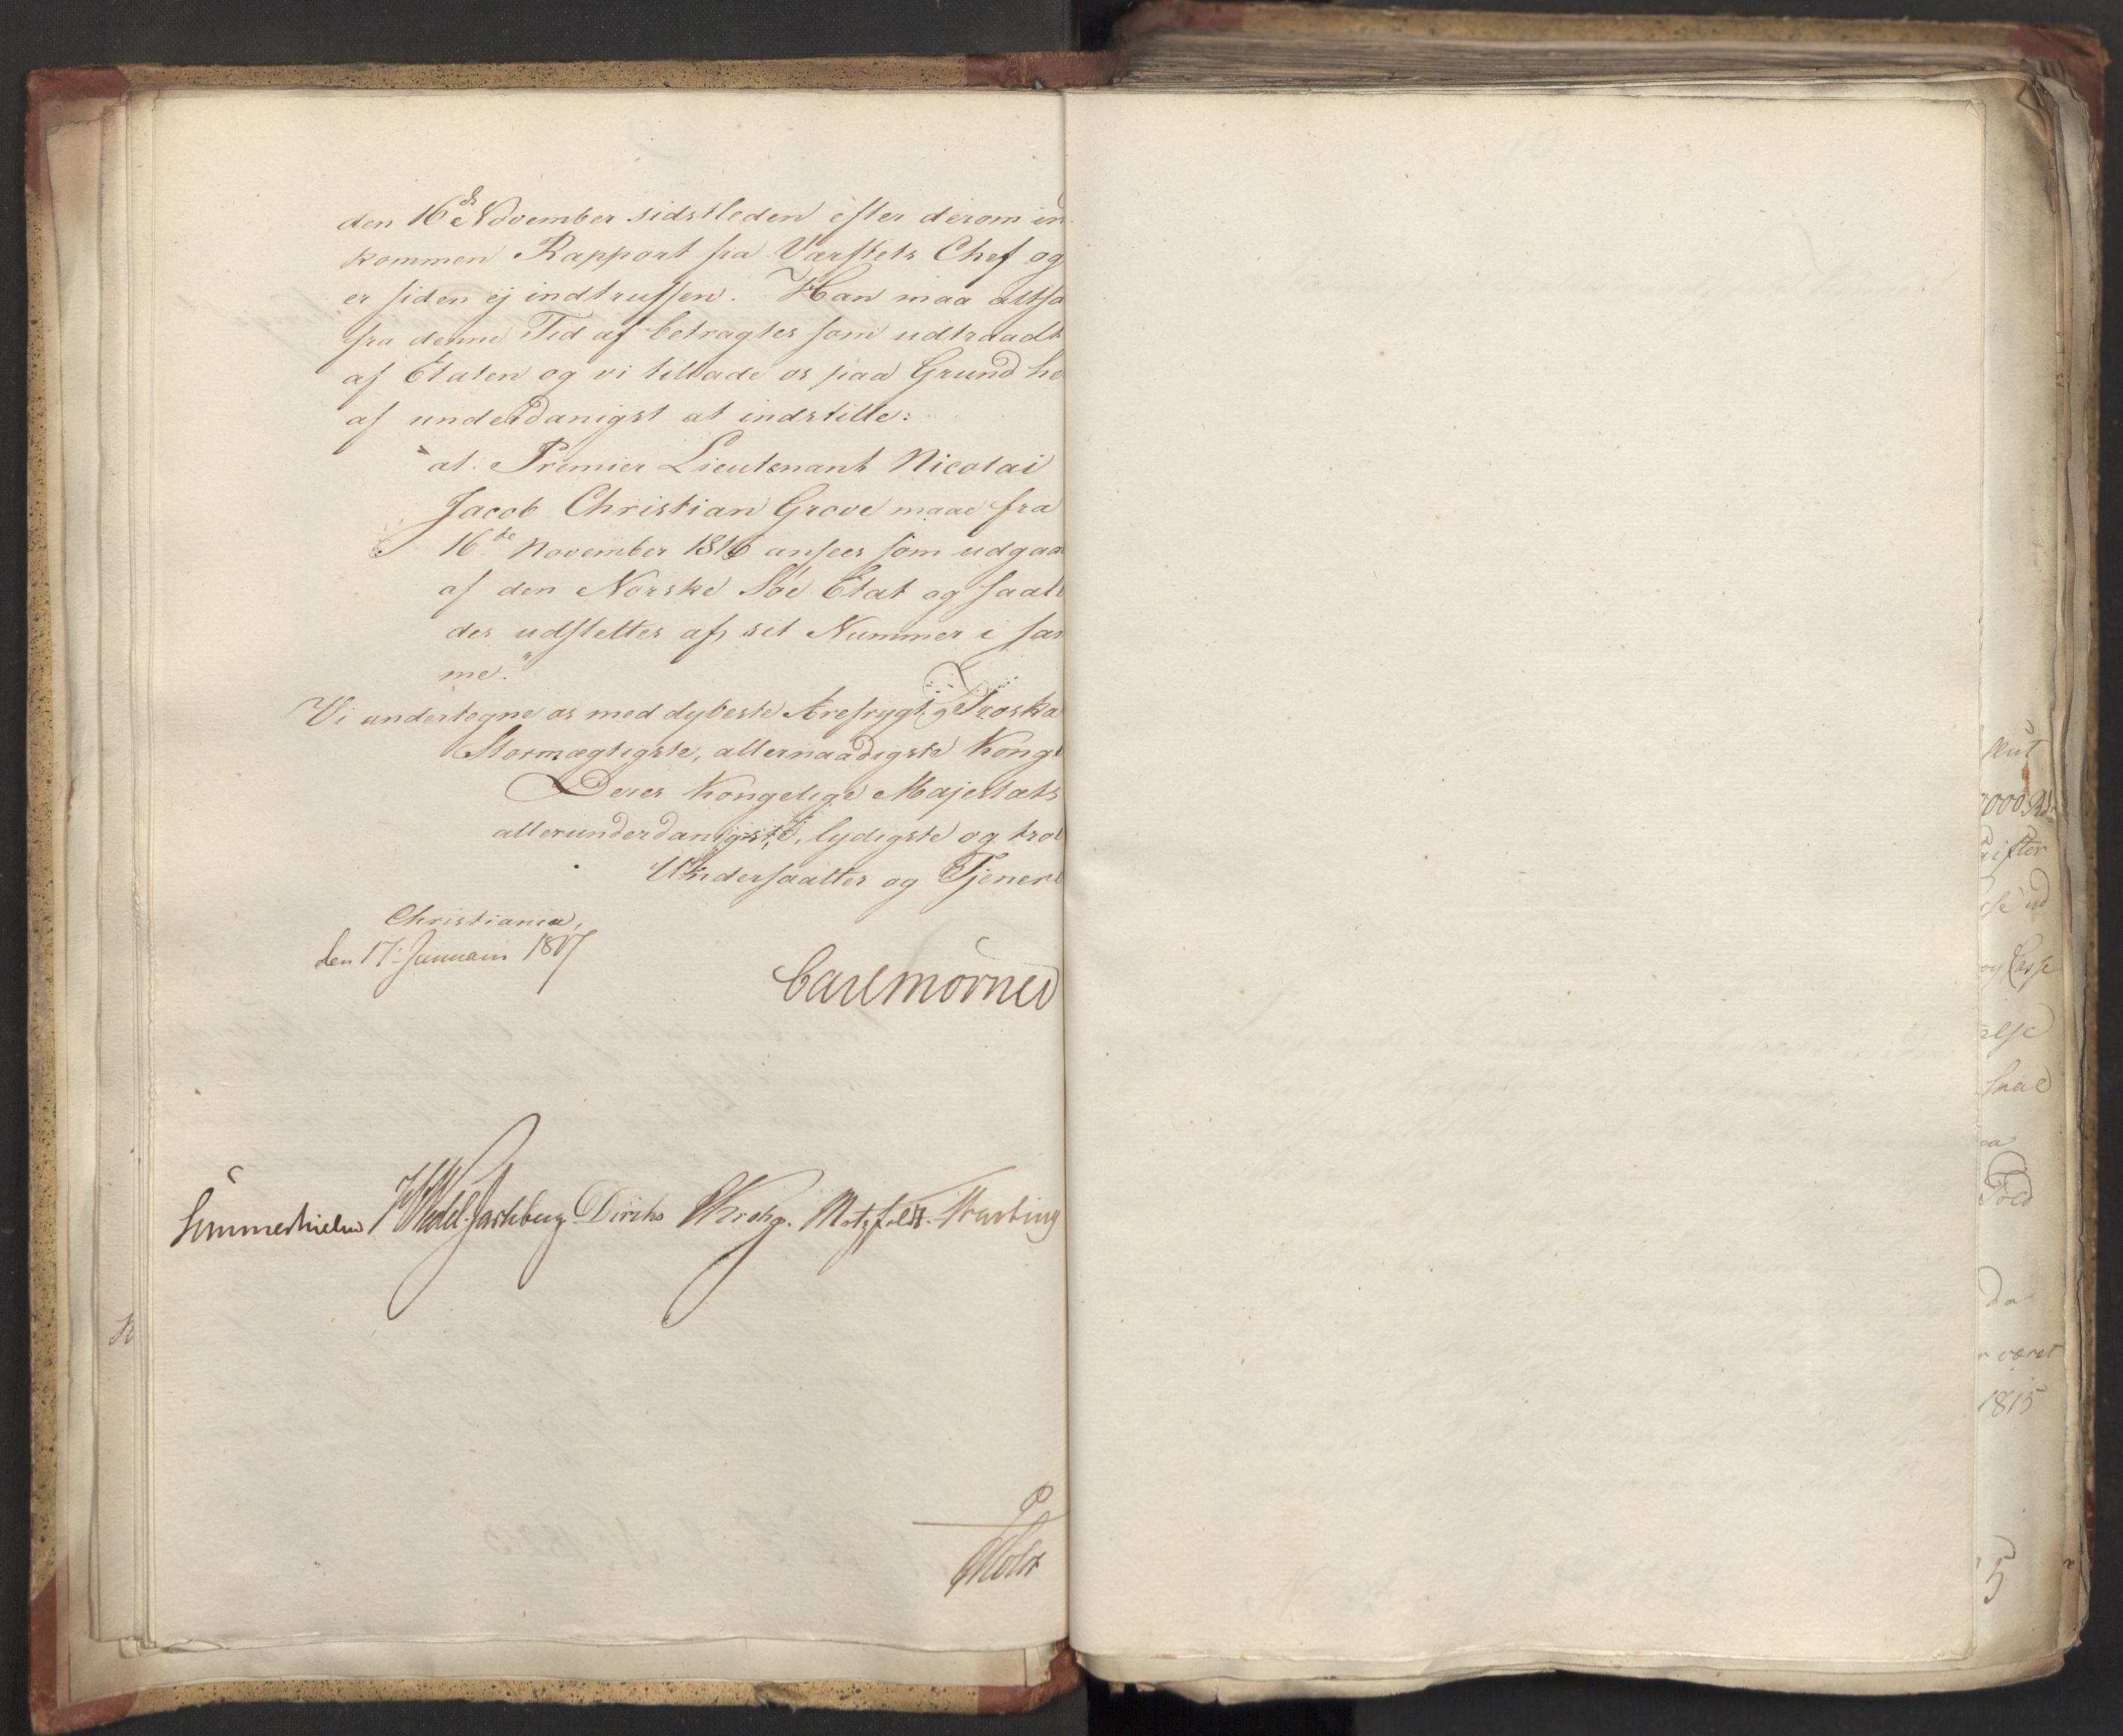 den 16de November sidstleden efter derom in
kommen Rapport fra Værftets Chef og
er siden ej indtruffen. Han maa altsa
fra denne Tid af betragtes som udtraadt
af Etaten og vi tillade os paa Grund he
af underdanigst at indstille:
"at Premier Lieutenant Nicolai
Jacob Christian Grove maae fra
16de November 1816 ansees som udgaa
af den Norske Søe Etat og saale
des udslettes af sit Nummer i sam
me."
Vi undertegne os med dybeste Ærefrygt og Troska
Stormægtigste, allernaadigste Konge
Deres Kongelige Majestæts
allerunderdanigste, lydigste og troe
Undersaatter og Tjenere
Christiania,
den 17 Januarii 1817
Carl Mörner
Sommerhielm HWedel Jarlsberg Diriks Krohg. Motzfeldt.
Holst
Kut
000 Rd
rifter
se ud
og Casse
else
hae
aa
Told
Da
r været
1815
5